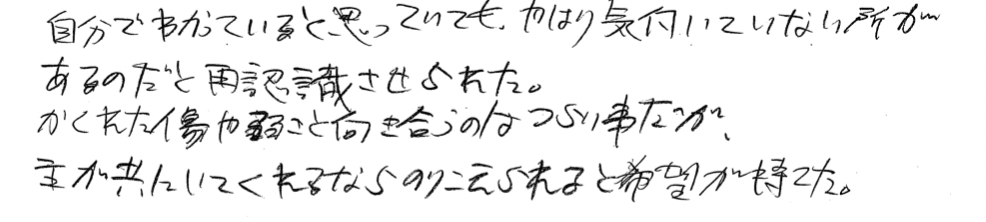 自分でわかっていると思っていても、やはり気付いていない所が
あるのだと再認識させられた。
かくれた傷や弱さと向き合うのはつらい事だが、
主が共にいてくれるならのりこえられると希望が持てた。